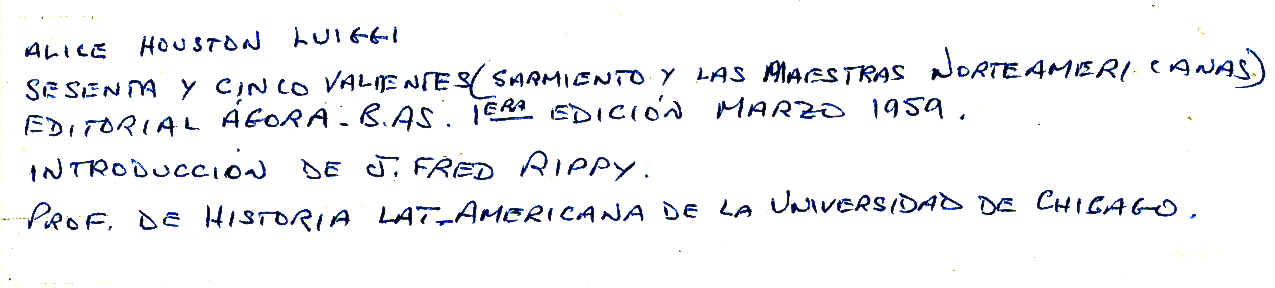 ALICE HOUSTON LUIGGI
SESENTA Y CINCO VALIENTES (SARMIENTO Y LAS MAESTRAS NORTEAMERICANAS)
EDITORIAL ÁGORA - B. AS. 1ERA EDICIÓN MARZO 1959.
INTRODUCCIÓN DE J. FRED RIPPY.
PROF. DE HISTORIA LAT-AMERICANA DE LA UNIVERSIDAD DE CHICAGO.